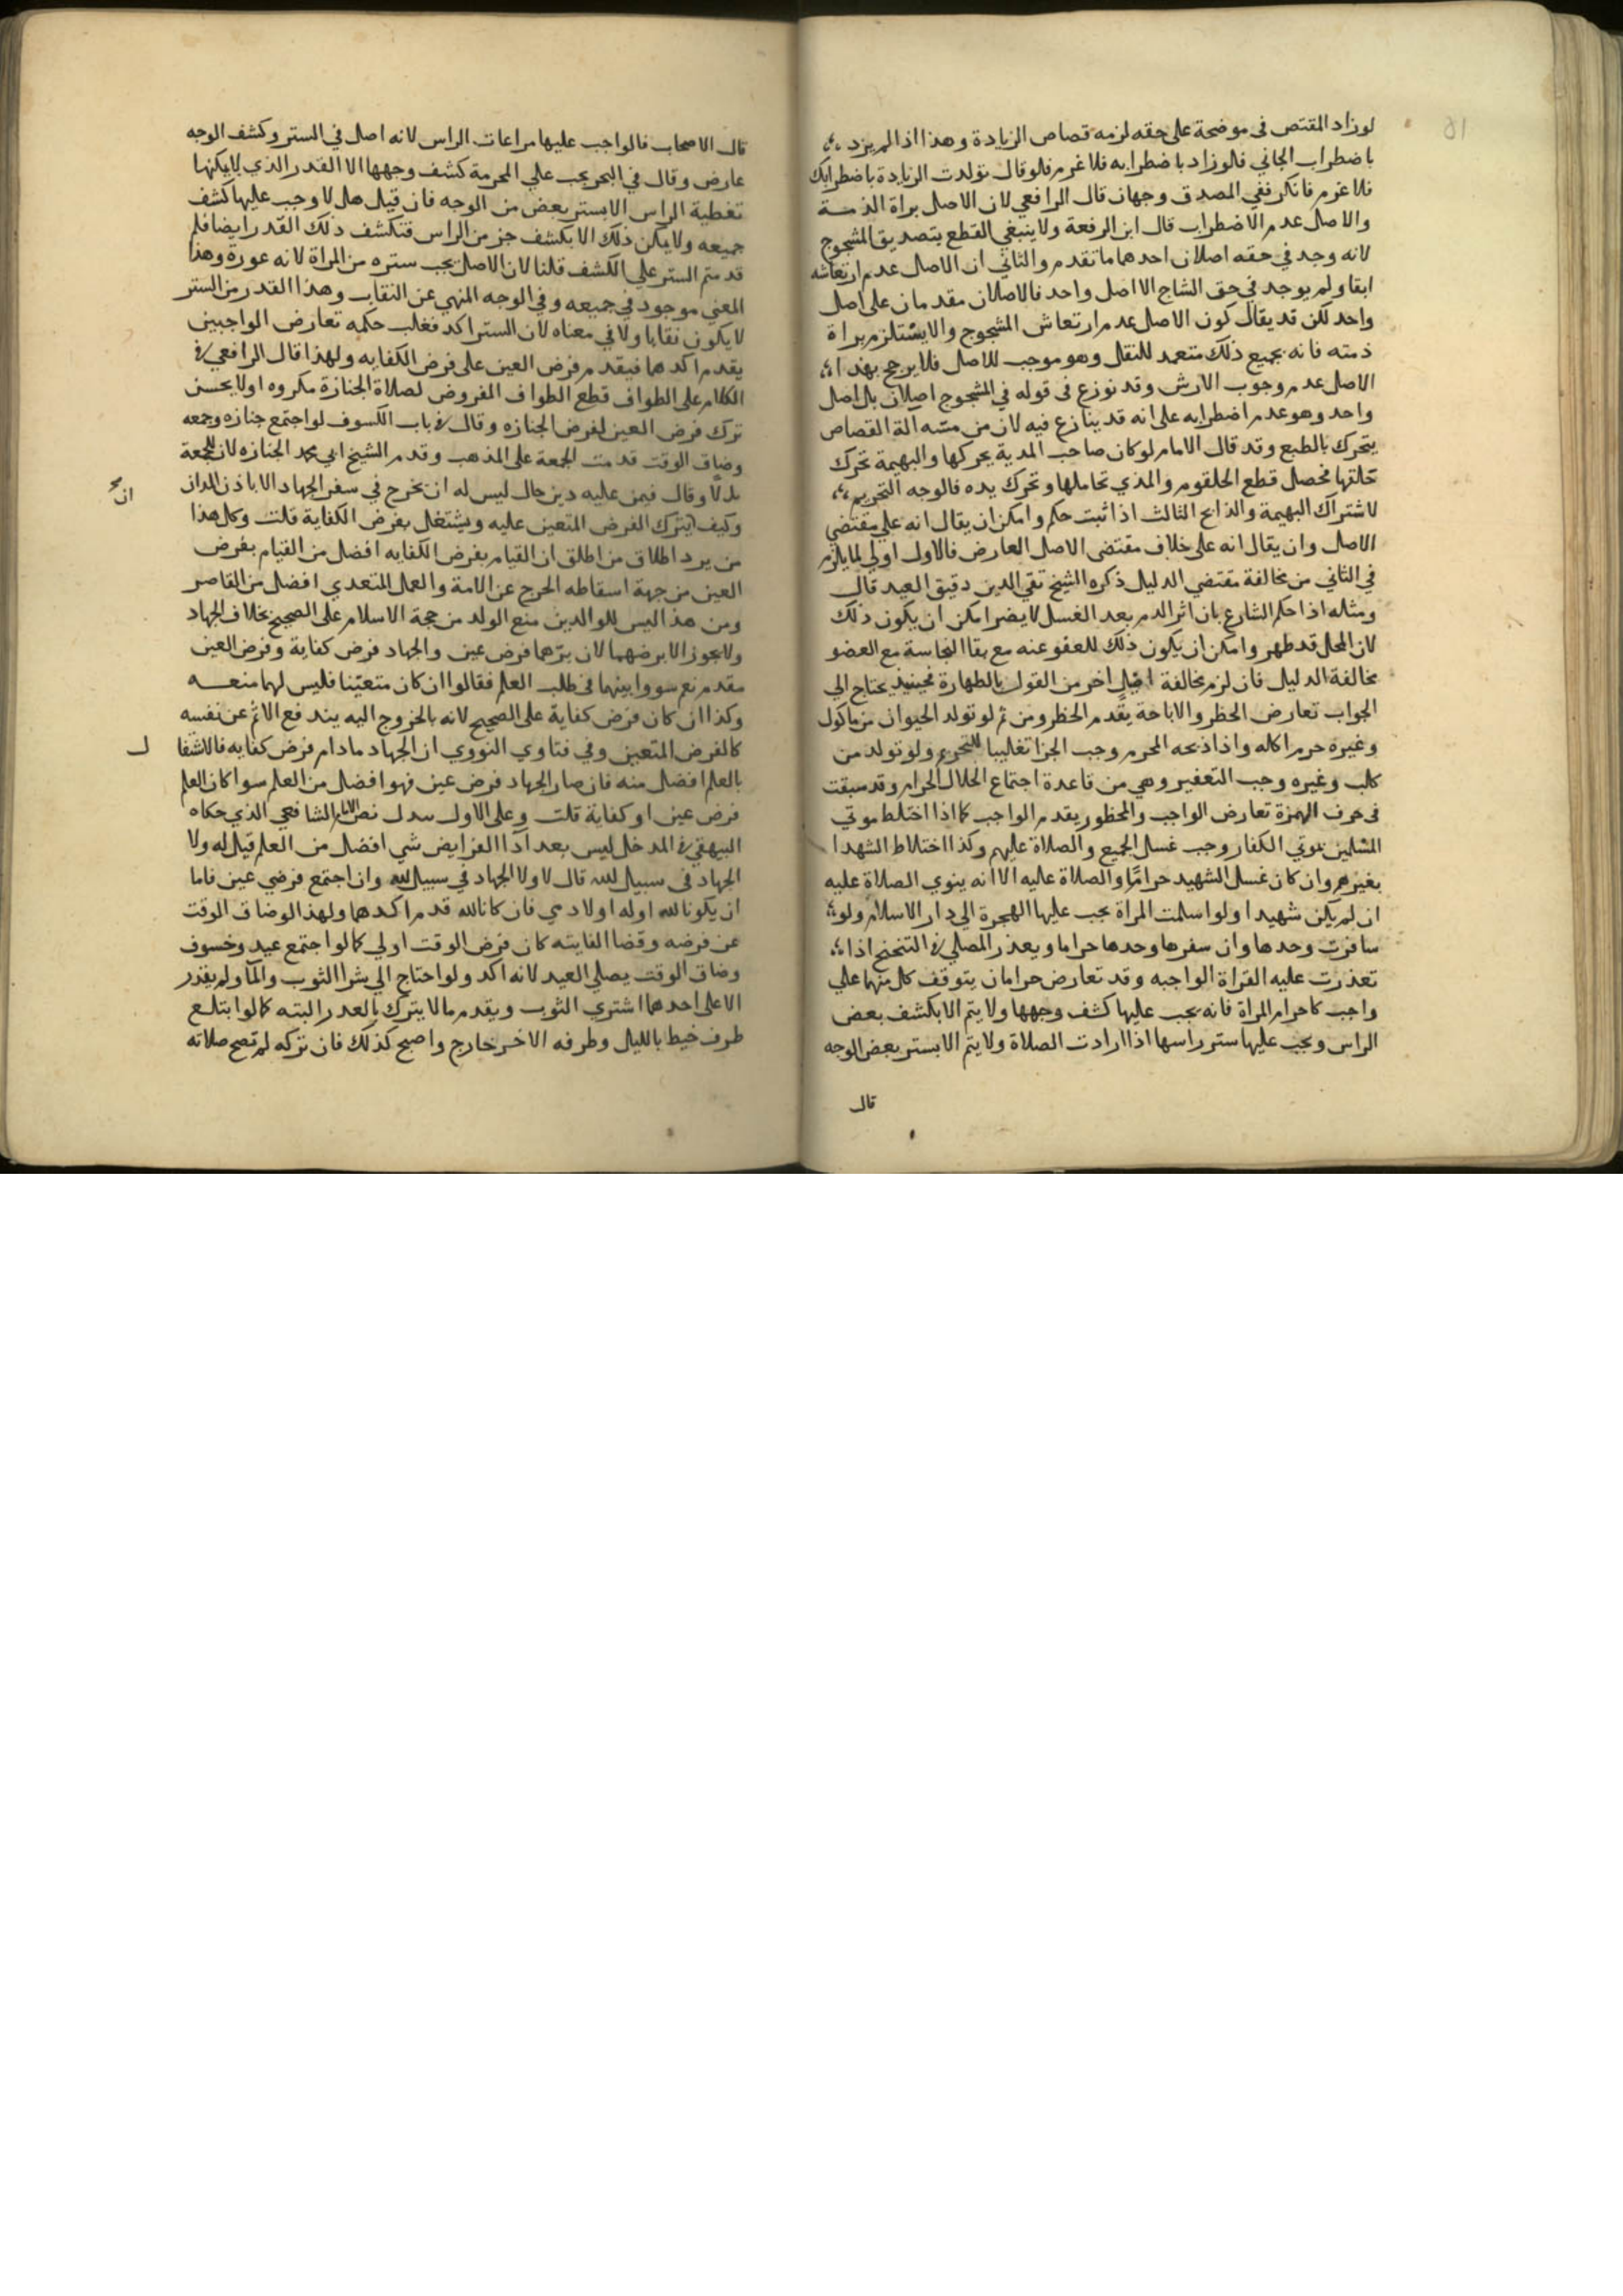 لو زاد المقتص فى موضحة على حقه لزمه قصاص الزيادة وهذا اذا لم يزد
باضطراب الجاني فلو زاد باضطرابه فلا غرم فلو قال تولدت الزيادة باضطرابك
فلا غرم فانكر ففي المصدق وجهان قال الرافعي لان الاصل براة الذمـــة
والاصل عدم الاضطراب قال ابن الرفعة ولا ينبغي القطع بتصديق المشجوج
لانه وجد في حقه اصلان احدهما ما تقدم والثاني ان الاصل عدم ارتعاشه
ابقا ولم يوجد في حق الشاج الا اصل واحد فالاصلان مقدمان على اصل
واحد لكن قد يقال كون الاصل عدم ارتعاش المشجوج والا يستلزم براة
ذمته فانه بجميع ذلك متعمد للنقل وهو موجب للاصل فلا يرجح بهذا
الاصل عدم وجوب الارش وقد نوزع فى قوله في المشجوج اصلان بل اصل
واحد وهو عدم اضطرابه على انه قد ينازع فيه لان من مسه الة القصاص
يتحرك بالطبع وقد قال الامام لو كان صاحب المدية يحركها والبهيمة تحرك
حلقها فحصل قطع الحلقوم والمذي تحاملها وتحرك يده فالوجه التحريم
لاشتراك البهيمة والذابح الثالث اذا ثبت حكم وامكن ان يقال انه على مقتضي
الاصل وان يقال انه على خلاف مقتضى الاصل العارض فالاول اولي لما يلزم
في الثاني من مخالفة مقتضي الدليل ذكره الشيخ تقي الدين دقيق العيد قال
ومثله اذا حكم الشارع بان اثر الدم بعد الغسل لا يضر امكن ان يكون ذلك
لان المحل قد طهر وامكن ان يكون ذلك للعفو عنه مع بقا النجاسة مع العضو
مخالفة الدليل فان لزم مخالفة اصل اخر من القول بالطهارة فحينيذ يحتاج الي
الجواب تعارض الحظر والاباحة يقدم الحظر ومن ثم لو تولد الحيوان من ماكول
وغيره حرم اكله واذا ذبحه المحرم وجب الجزا تغليبا للتحريم ولو تولد من
كلب وغيره وجب التعفير وهي من قاعدة اجتماع الحلال الحرام وقد سبقت
فى حرف الهمزة تعارض الواجب والمحظور يقدم الواجب كما اذا اختلط موتي
المسلمين بموتي الكفار وجب غسل الجميع والصلاة عليهم وكذا اختلاط الشهدا
بغيرهم وان كان غسل الشهيد حراما والصلاة عليه الا انه ينوي الصلاة عليه
ان لم يكن شهيدا ولو اسلمت المراة يجب عليها الهجرة الي دار الاسلام ولو
سافرت وحدها وان سفرها وحدها حراما ويعذر المصلي في التنحنح اذا
تعذرت عليه القراة الواجبه وقد تعارض حرامان يتوقف كل منهما على
واجب كاحرام المراة فانه يجب عليها كشف وجهها ولا يتم الا بكشف بعض
الراس ويجب عليها ستر راسها اذا ارادت الصلاة ولا يتم الا بستر بعض الوجه
قال
قال الاصحاب فالواجب عليها مراعات الراس لانه اصل في الستر وكشف الوجه
عارض وقال في البحر يجب علي المحرمة كشف وجهها الا القدر الذي لا يمكنها
تغطية الراس الا بستر بعض من الوجه فان قيل هل لا وجب عليها كشف
جميعه ولا يمكن ذلك الا بكشف جز من الراس فتكشف ذلك القدر ايضا فلم
قدمتم الستر علي الكشف قلنا لان الاصل يجب ستره من المراة لانه عورة وهذا
المعني موجود في جميعه وفي الوجه المنهي عن النقاب وهذا القدر من الستر
لا يكون نقابا ولا في معناه لان الستر اكد فغلب حكمه تعارض الواجبين
يقدم اكدهما فيقدم فرض العين على فرض الكفايه ولهذا قال الرافعي في
الكلام على الطواف قطع الطواف المفروض لصلاة الجنازة مكروه اولا يحسن
ترك فرض العين لفرض الجنازه وقال في باب الكسوف لو اجتمع جنازه وجمعه
وضاق الوقت قدمت الجمعة على المذهب وقدم الشيخ ابي محمد الجنازه لان للجمعة
بدلا وقال فيمن عليه دين حال ليس له ان يخرج في سفر الجهاد الا باذن الداين
ان صح
وكيف يترك الفرض المتعين عليه ويشتغل بفرض الكفاية قلت وكل هذا
من يرد اطلاق من اطلق ان القيام بفرض الكفايه افضل من القيام بفرض
العين من جهة اسقاطه الحرج عن الامة والعمل المتعدي افضل من القاصر
ومن هذا ليس للوالدين منع الولد من حجة الاسلام على الصحيح بخلاف الجهاد
ولا يجوز الا برضهما لان برهما فرض عين والجهاد فرض كفاية وفرض العين
مقدم نعم سووا بينهما في طلب العلم فقالوا ان كان متعينا فليس لهما منعـــه
وكذا ان كان فرض كفاية على الصحيح لانه بالخروج اليه يندفع الاثم عن نفسه
كالفرض المتعين وفي فتاوي النووي ان الجهاد مادام فرض كفايه فالاشتغا
ل
بالعلم افضل منه فان صار الجهاد فرض عين فهو افضل من العلم سوا كان العلم
فرض عين او كفاية قلت وعلى الاول يدل نص الامام الشافعي الذي حكاه
البيهقي في المدخل ليس بعد ادا الفرايض شي افضل من العلم قيل له ولا
الجهاد فى سبيل لله قال لا ولا الجهاد في سبيل لله وان اجتمع فرضي عين فاما
ان يكونا لله اوله اولادمي فان كانا لله قدم اكدهما ولهذا لو ضاق الوقت
عن فرضه وقضا الفايته كان فرض الوقت اولي كما لو اجتمع عيد وخسوف
وضاق الوقت يصلي العيد لانه اكد ولو احتاج الي شرا الثوب والما ولم يقدر
الا على احدهما اشتري الثوب ويقدم ما لا يترك بالعدر البته كما لو ابتلع
طرف خيط بالليل وطرفه الاخر خارج واصبح كذلك فان تركه لم تصح صلاته